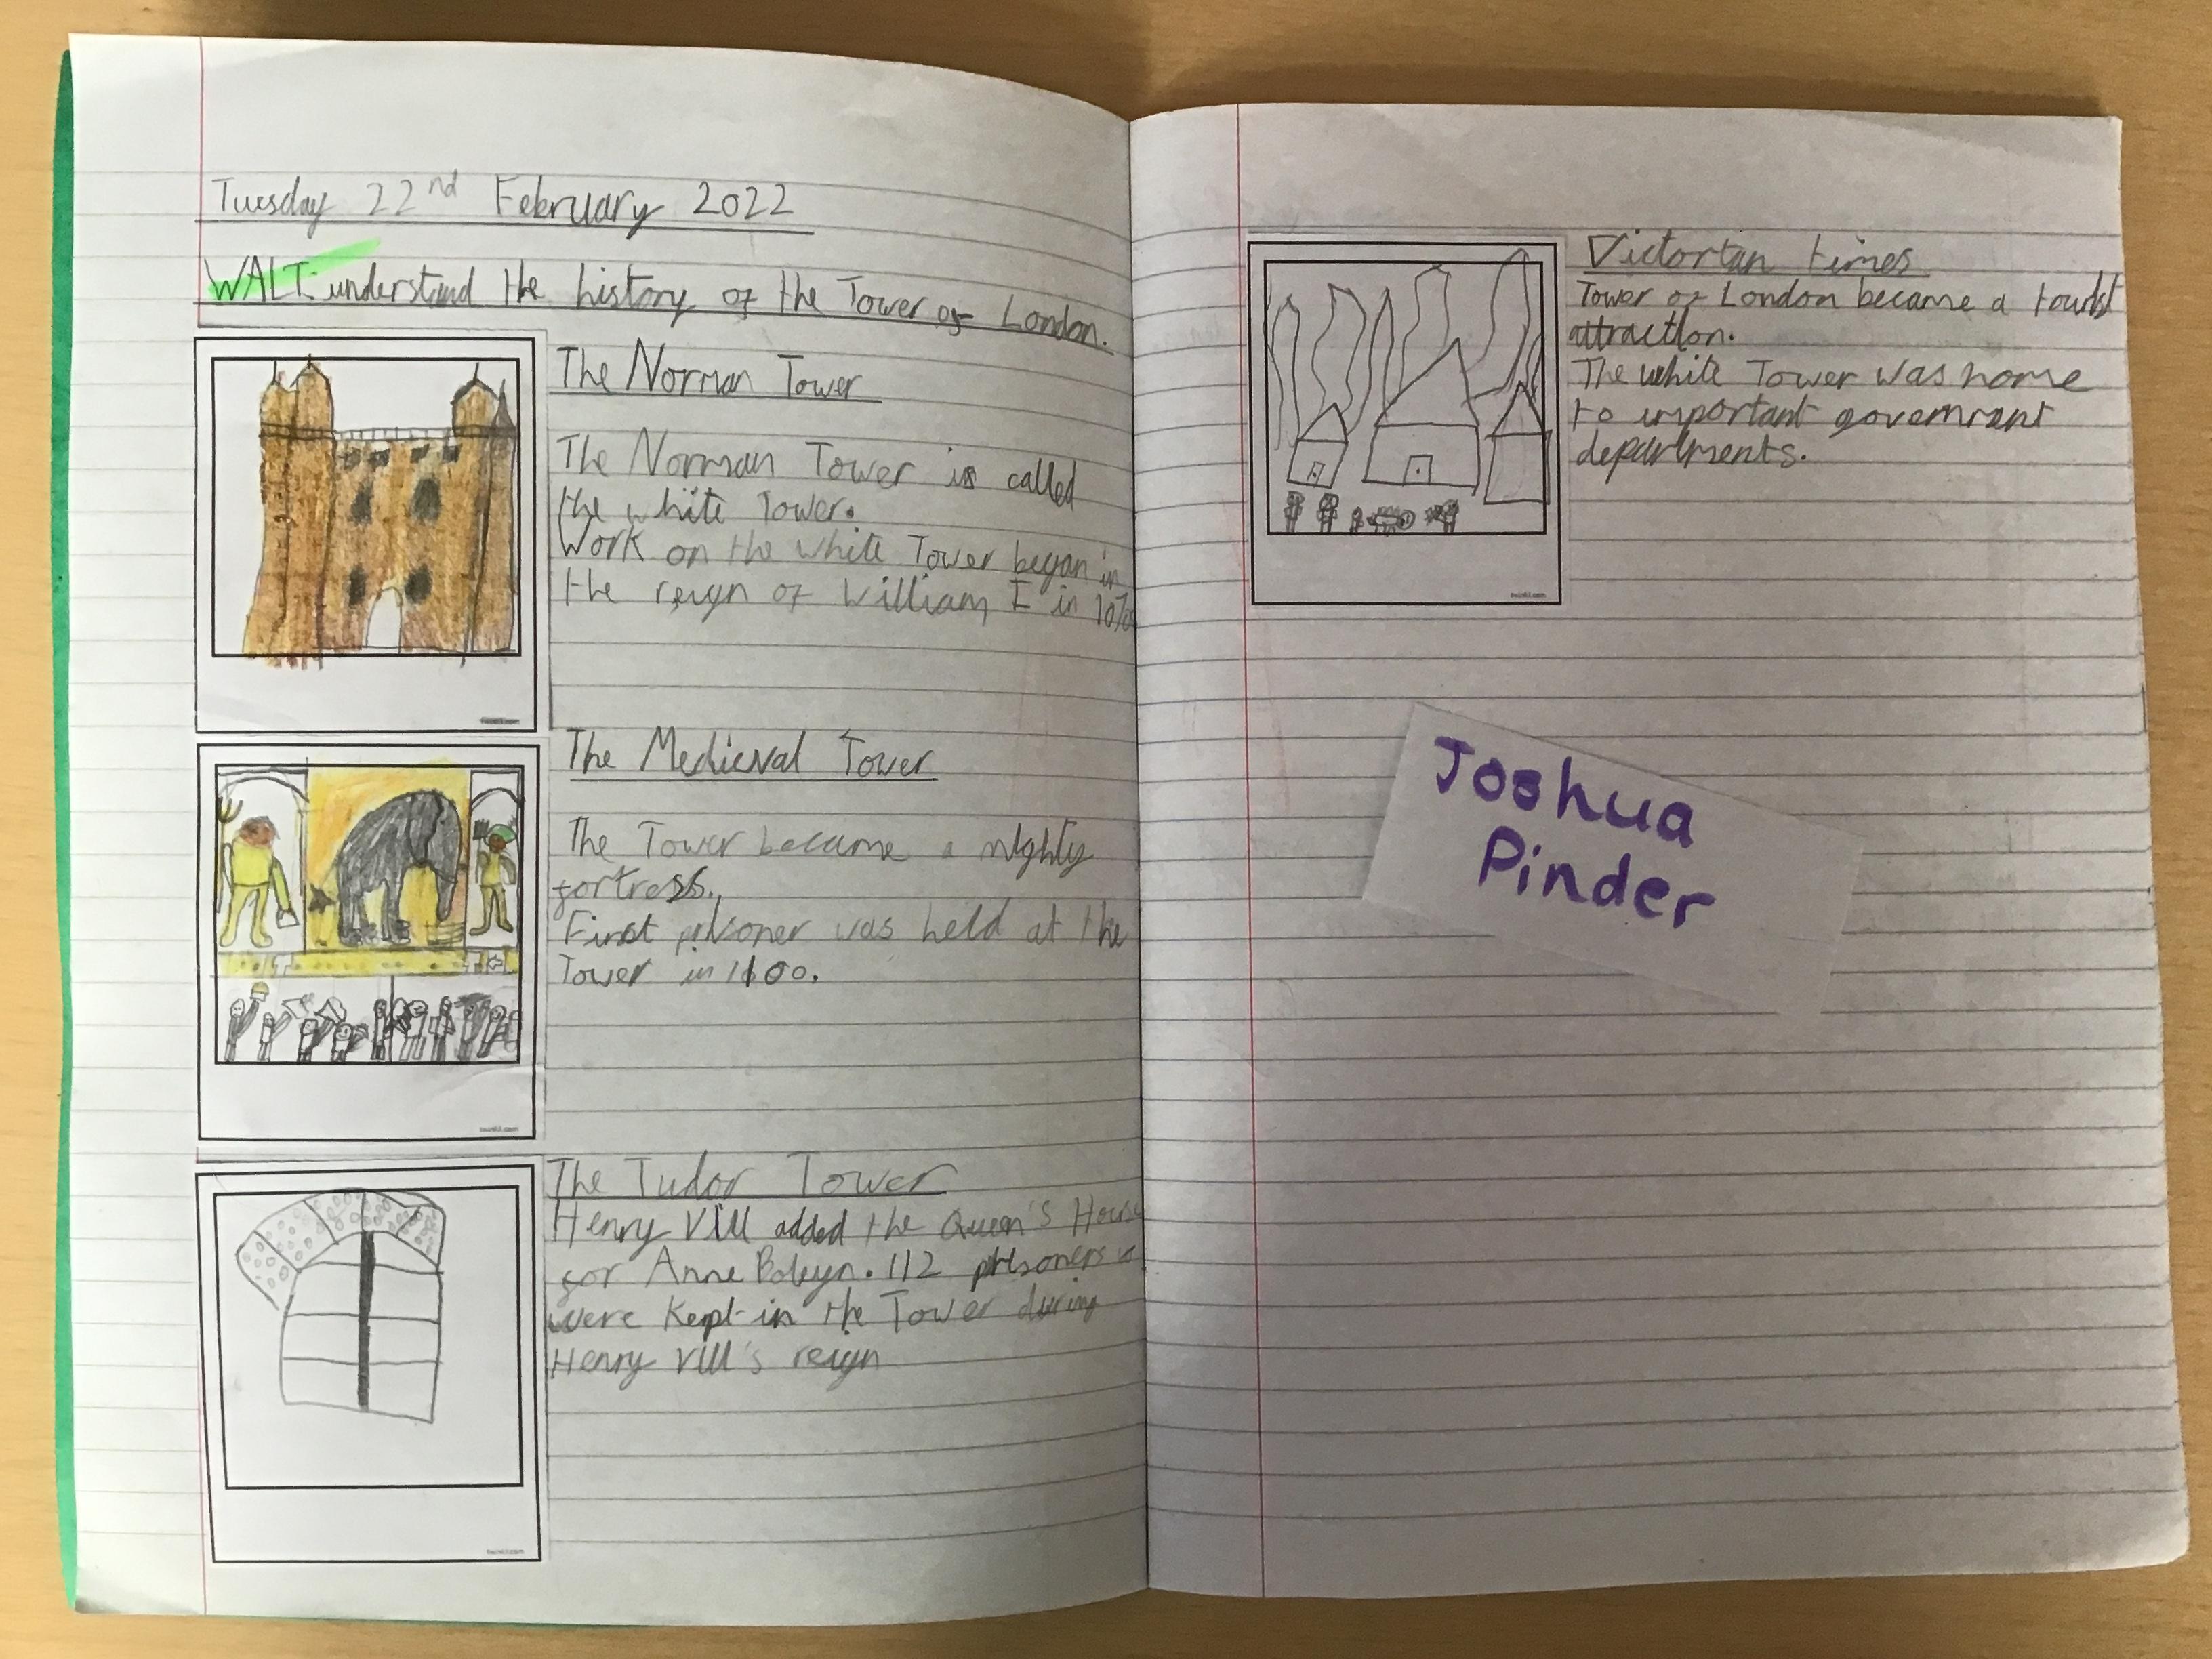 Tuesday 22nd February 2022
WALT: understand the history of the Tower of London.
The Norman Tower
The Norman Tower is called
the white Tower.
Work on the white Tower began in
the reign of William I in
twinkl.com
The Medieval Tower
The Tower became a mighty
fortress.
First prisoner was held at the
Tower in 1100.
twinkl.com
The Tudor Tower
Henry VIII added the Queen's House
for Anne Boleyn. 112 prisoners
were kept in the Tower during
Henry VIII's reign
twinkl.com
Victorian times
Tower of London became a tourist
attraction.
The white Tower was home
to important government
departments.
twinkl.com
Joshua
Pinder